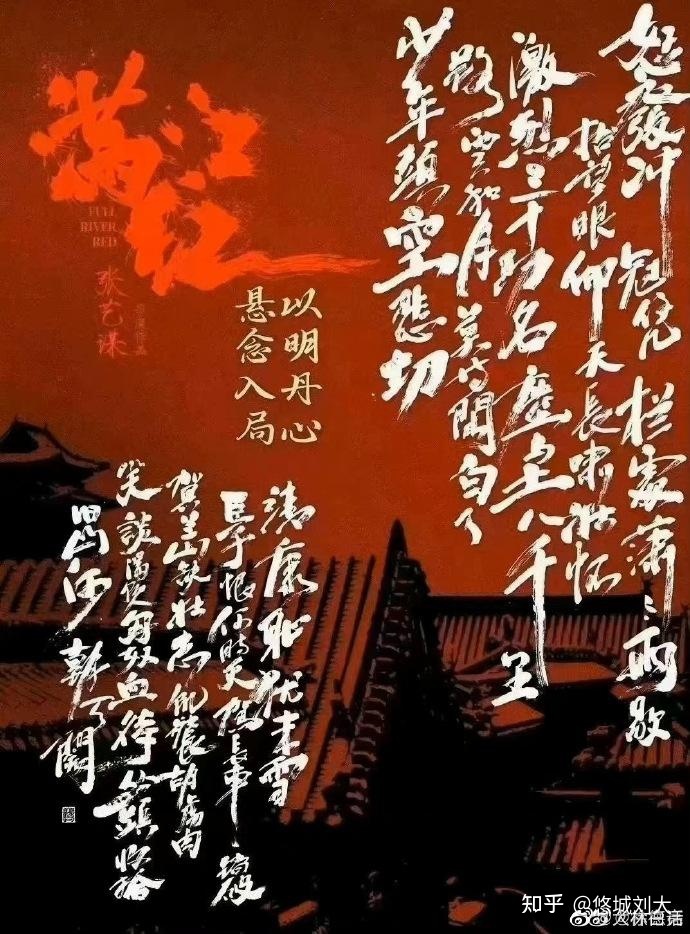 满江红
FULL
RIVER
RED
张艺谋
以明丹心
悬念入局
怒發冲冠凭栏處潇〻雨歇
抬望眼仰天長啸壮怀
激烈三十功名塵土八千里
路雲和月莫等閒白了
少年頭空悲切
靖康耻犹未雪
臣子恨何時灭駕長車破
賀兰山缺壮志飢餐胡虏肉
笑談渴飲匈奴血待從頭收拾
旧山河朝天闕
知乎 @悠城刘大